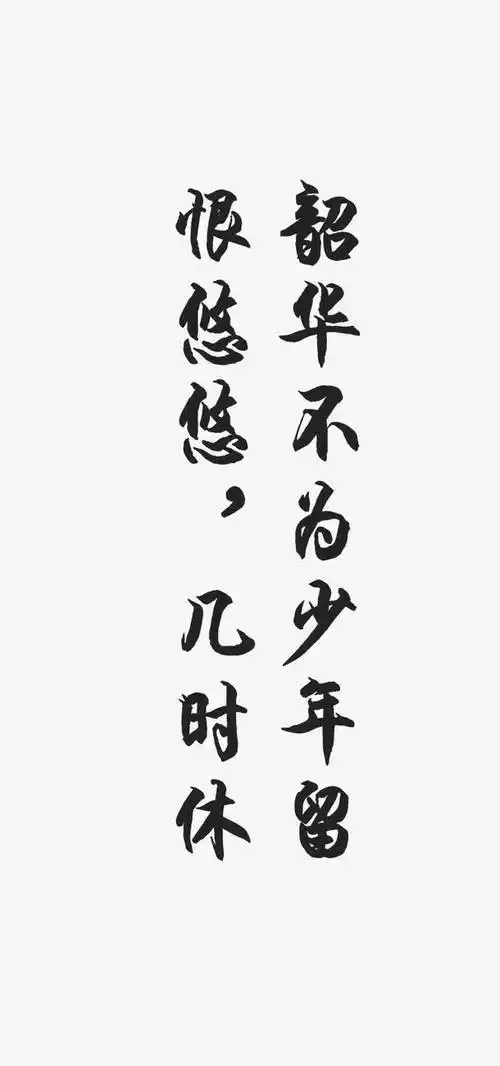 韶华不为少年留
恨悠悠，几时休